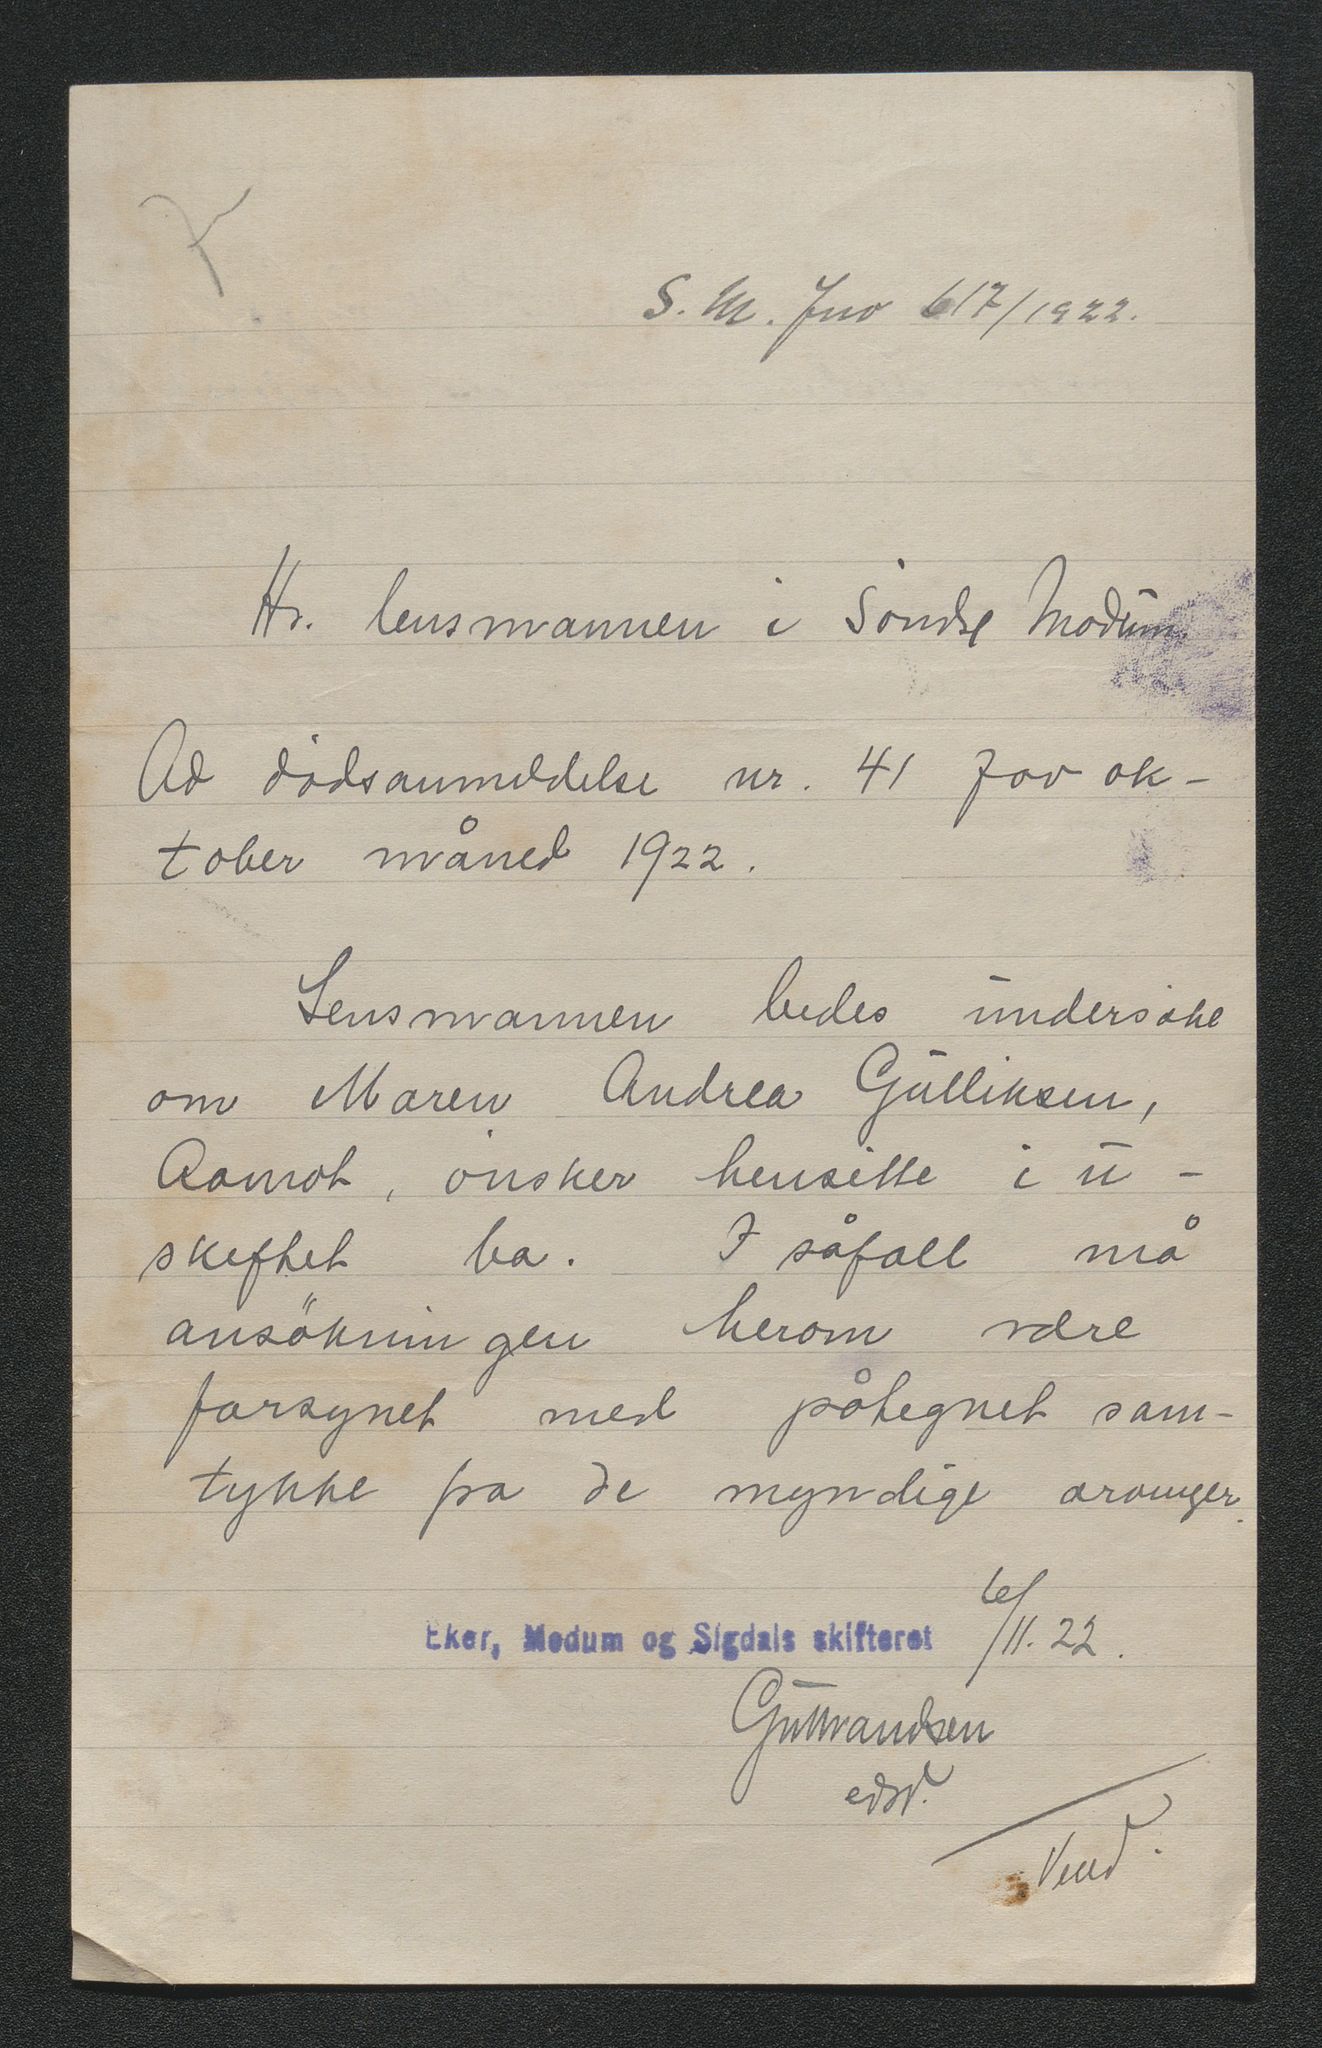 S. M. Jno 617/1922.
Hr. lensmannen i Söndre Modum
Ad dödsanmeldelse nr. 41 for ok-
tober måned 1922.
Lensmannen bedes undersöke
om Maren Andrea Gulliksen,
Aamot, önsker hensitte i u-
skiftet bo. I såfall må
ansökningen herom være
forsynet med påtegnet sam-
tykke fra de myndige arvinger.
Eker, Modum og Sigdals skifteret 6/11.22.
Guttvandsen
edsv.
Vend.